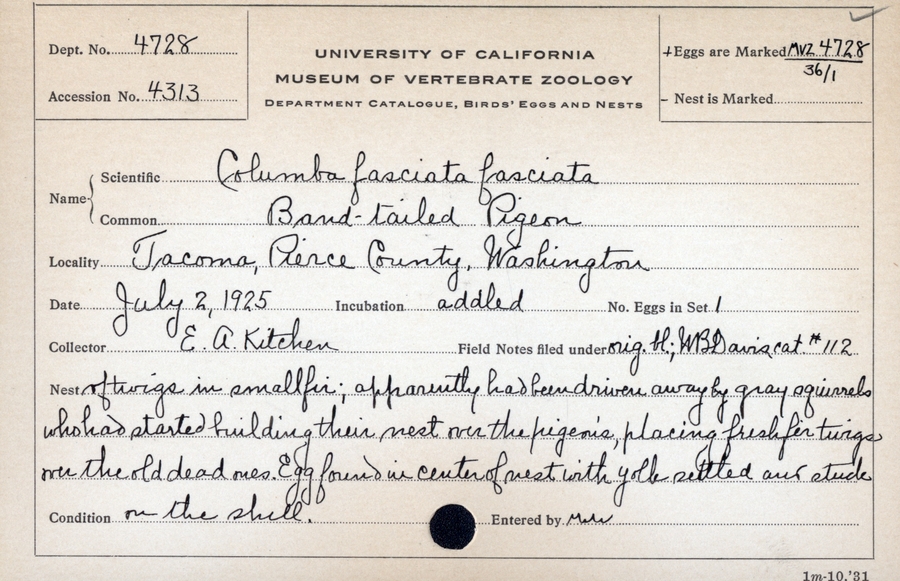 Dept. No. 4728
Accession No. 4313
UNIVERSITY OF CALIFORNIA
MUSEUM OF VERTEBRATE ZOOLOGY
DEPARTMENT CATALOGUE, BIRDS' EGGS AND NESTS
+Eggs are Marked MVZ 4728
36/1
- Nest is Marked
Name { Scientific Columba fasciata fasciata
Common Band-tailed Pigeon
Locality Tacoma, Pierce County, Washington
Date July 2, 1925 Incubation addled No. Eggs in Set 1
Collector E. A. Kitchen Field Notes filed under orig. bl; WBDavis cat. #112
Nest of twigs in small fir; apparently had been driven away by gray squirrels
who had started building their nest over the pigeon's, placing fresh fer twigs
over the old dead ones. Egg found in center of nest with yolk settled and stuck
Condition on the shell. Entered by
1m-10,'31